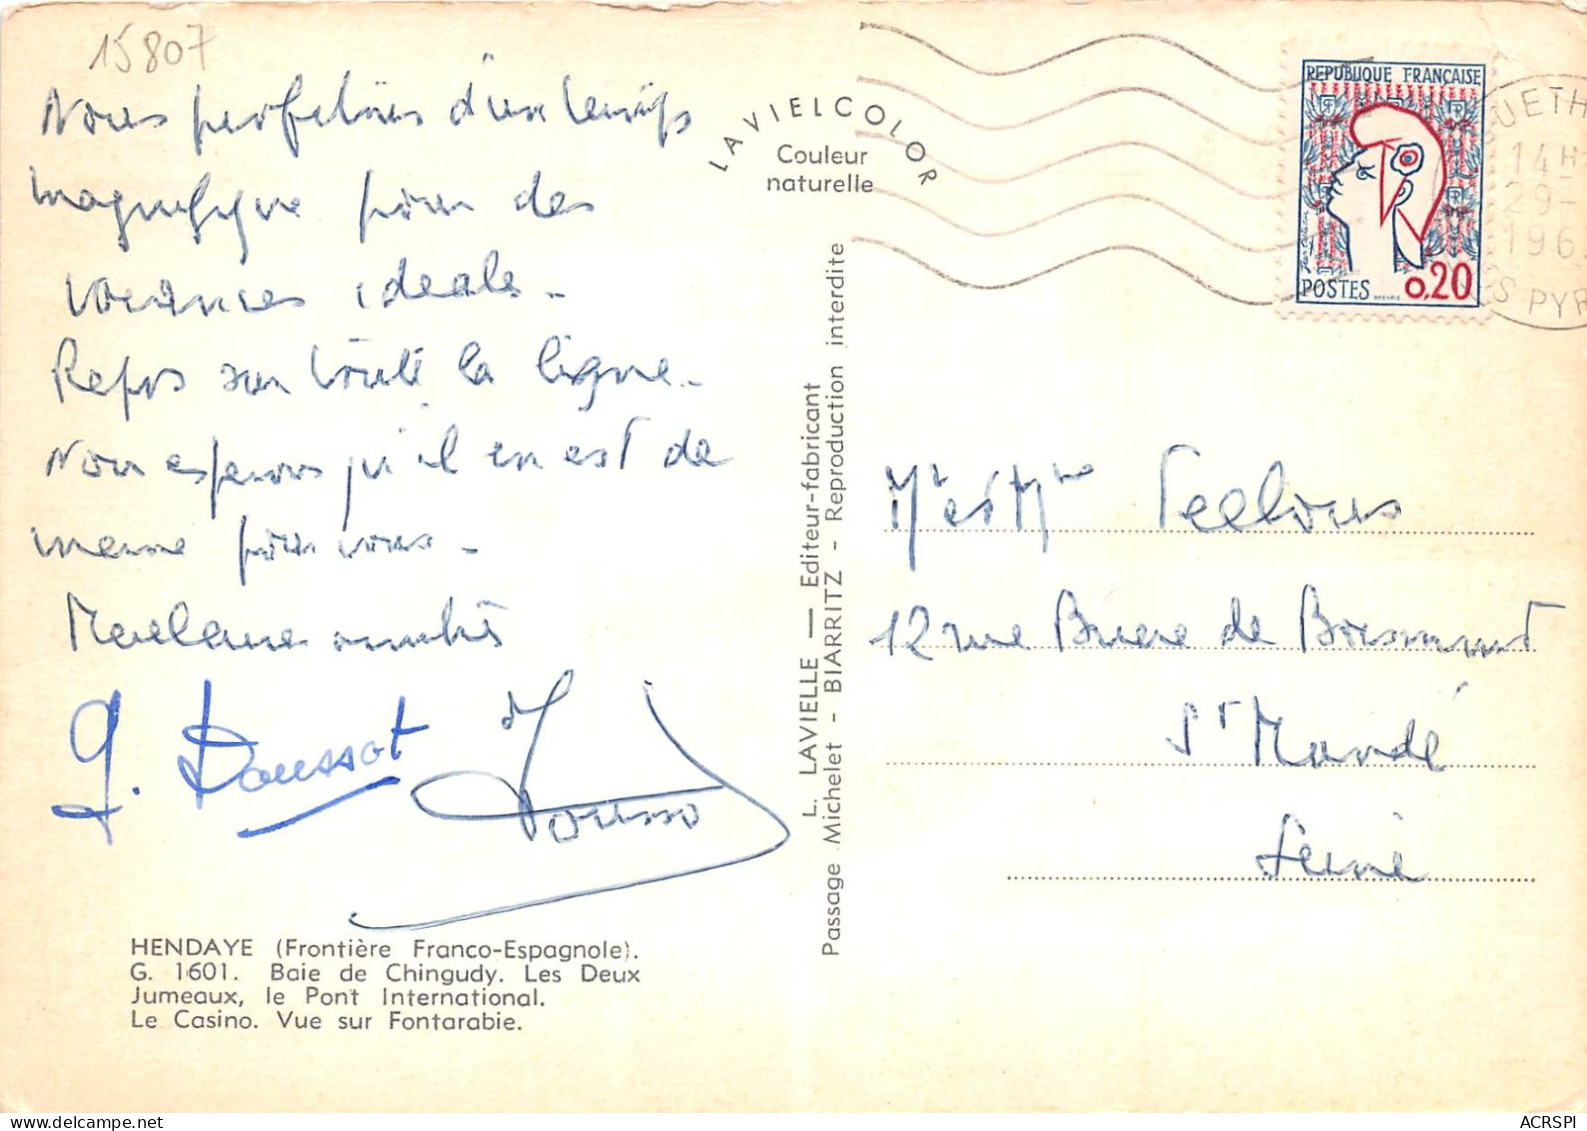 15807
Nous profitons d'un temps
magnifique pour des
vacances idéales -
Repos sur toute la ligne -
Nous espérons qu'il en est de
meme pour vous -
Meilleures amitiés
G. Doussot
Doussot
HENDAYE (Frontière Franco-Espagnole).
G. 1601. Baie de Chingudy. Les Deux
Jumeaux, le Pont International.
Le Casino. Vue sur Fontarabie.
LAVIELCOLOR
Couleur
naturelle
L. LAVIELLE — Editeur-fabricant
Passage Michelet - BIARRITZ - Reproduction interdite
REPUBLIQUE FRANÇAISE
POSTES 0,20
UETH
14 H
29-
196
S PYR
Mr et Mme
12 rue de
St Mandé
Seine
ACRSPI